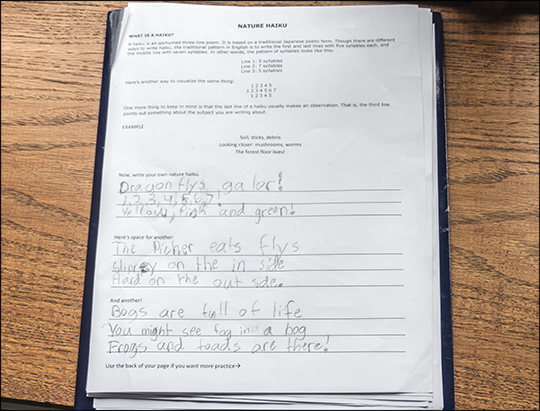 NATURE HAIKU
WHAT IS A HAIKU?
A haiku is an unrhymed three-line poem. It is based on a traditional Japanese poetic form. Though there are different
ways to write haiku, the traditional pattern in English is to write the first and last lines with five syllables each, and
the middle line with seven syllables. In other words, the pattern of syllables looks like this:
Line 1: 5 syllables
Line 2: 7 syllables
Line 3: 5 syllables
Here's another way to visualize the same thing:
1 2 3 4 5
1 2 3 4 5 6 7
1 2 3 4 5
One more thing to keep in mind is that the last line of a haiku usually makes an observation. That is, the third line
points out something about the subject you are writing about.
EXAMPLE
Soil, sticks, debris
Looking closer: mushrooms, worms
The forest floor lives!
Now, write your own nature haiku.
Dragonflys galor!
1,2,3,4,5,6,7!
Yellow, Pink and green!
Here's space for another:
The Picher eats flys
slippey on the in side
Hard on the out side.
And another!
Bogs are full of life
You might see fog in a bog
Frogs and toads are there!
Use the back of your page if you want more practice→